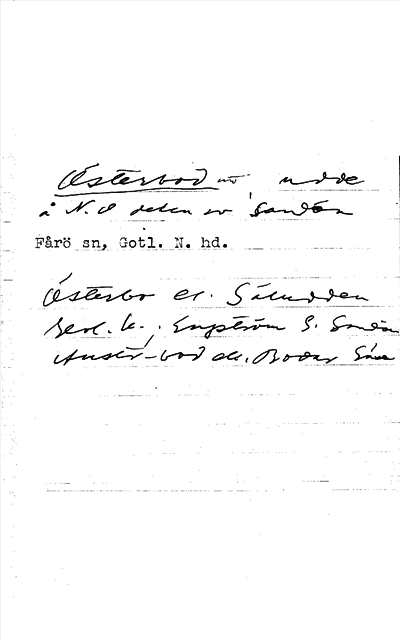 Österbod udde
å N.O delen av Sandön
Fårö sn, Gotl. N. hd.
Österbo el. Säludden
Geol. k., Engström G. Sandön
Austr-bod el. Bodar